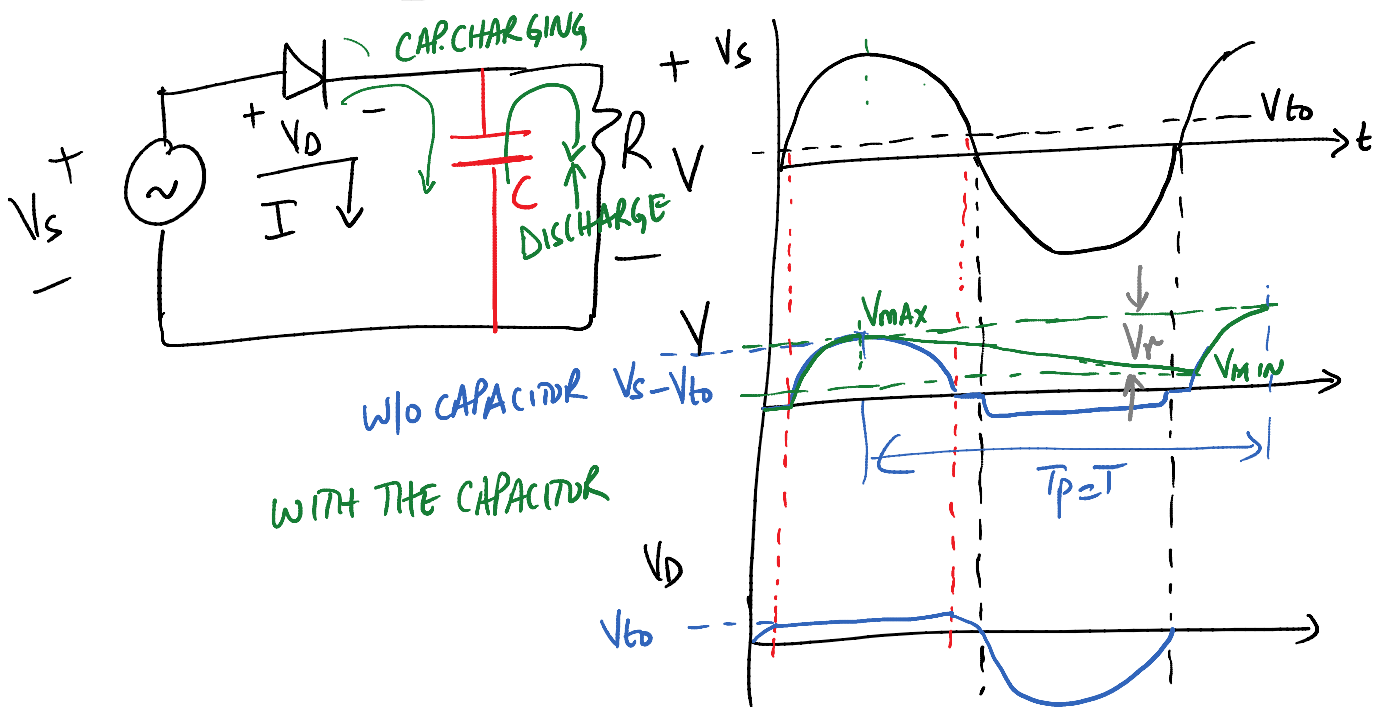 CAP.CHARGING
+ VD -
I
+
Vs
-
C
R
DISCHARGE
+
V
-
Vs
Vto
t
V
VMAX
Vr
VMIN
Vs-Vto
W/O CAPACITOR
Tp=T
WITH THE CAPACITOR
VD
Vto